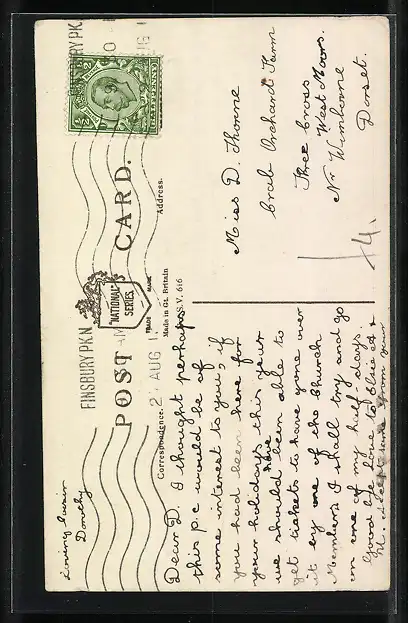 FINSBURY PK N
2 AUG 1
FINSBURY PK
AUG 1
POST CARD.
"NATIONAL" SERIES
TRADE MARK
Made in Gt. Britain
S.V. 616
Correspondence.
Address.
Dear D. I thought perhaps
this p.c. would be of
some interest to you, if
you had been here for
your holidays this year
we should have been able to
get tickets to have gone over
it by one of the Church
Members I shall try and go
on one of my half-days.
Good bye love to Elsie &
accept same from your
loving cousin
Dorothy
Miss D. Thorne
Crab Orchard Farm
Three Cross
West Moors.
Nr Wimborne
Dorset.